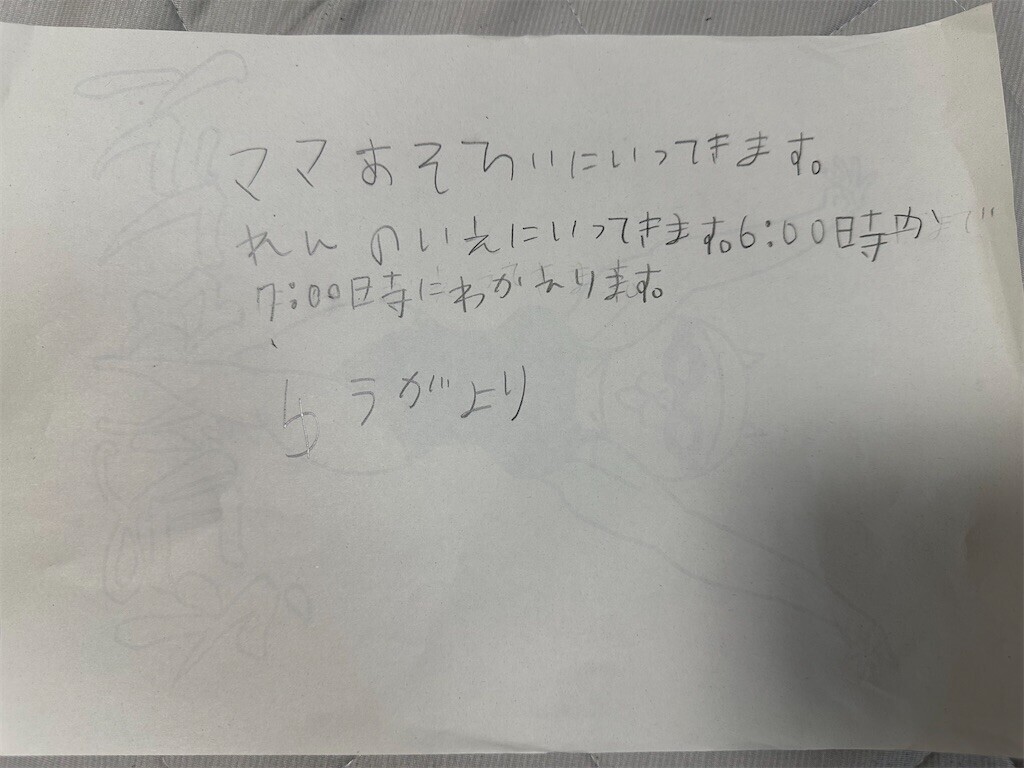 ママあそびにいってきます。
れんのいえにいってきます。6:00時か
7:00時にわかえります。
うがより